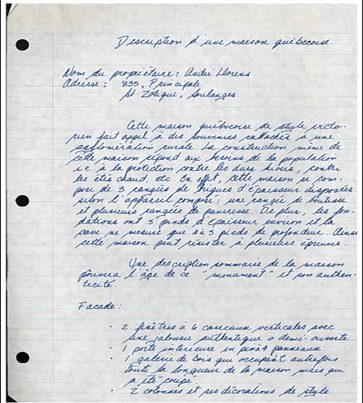 Description d'une maison québécoise
Nom du propriétaire : André Llorens
Adresse : 835, Principale
St Zotique, Soulanges
Cette maison québécoise de style victo-
rien fait appel à des sources rattachées à une
agglomération rurale. La construction même de
cette maison répond aux besoins de la population
ie à la protection contre les durs hivers, contre
les étés chaud etc. En effet, cette maison se com-
pose de 3 rangées de briques d'épaisseur disposées
selon l'appareil composé: une rangée de boutisse
et plusieurs rangées de panneresse. De plus, les fon-
dations ont 3 pieds d'épaisseur environ et la
cave ne mesure que 2 à 3 pieds de profondeur. Ainsi
cette maison peut résister à plusieurs épreuves.
Une description sommaire de la maison
prouvera l'âge de ce "monument" et son authen-
ticité.
Facade:
- 2 fenêtres à 6 carreaux verticales avec
une jalousie authentique à demi-ouverte.
- 1 porte intérieure en pin à panneaux
- 1 galerie de bois qui occupait autrefois
toute la longueur de la maison mais qui
a été coupé
- 2 colonnes et ses décorations de style